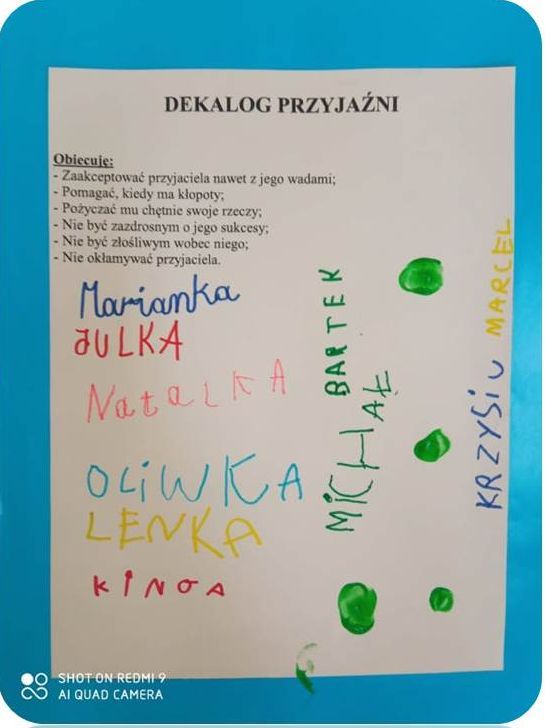 DEKALOG PRZYJAŹNI
Obiecuję:
- Zaakceptować przyjaciela nawet z jego wadami;
- Pomagać, kiedy ma kłopoty;
- Pożyczać mu chętnie swoje rzeczy;
- Nie być zazdrosnym o jego sukcesy;
- Nie być złośliwym wobec niego;
- Nie okłamywać przyjaciela.
Marianka
JULKA
NatalKA
OLiWKA
LENKA
KINGA
BARTEK
MICHAŁ
KRZYSIU
MARCEL
SHOT ON REDMI 9
AI QUAD CAMERA